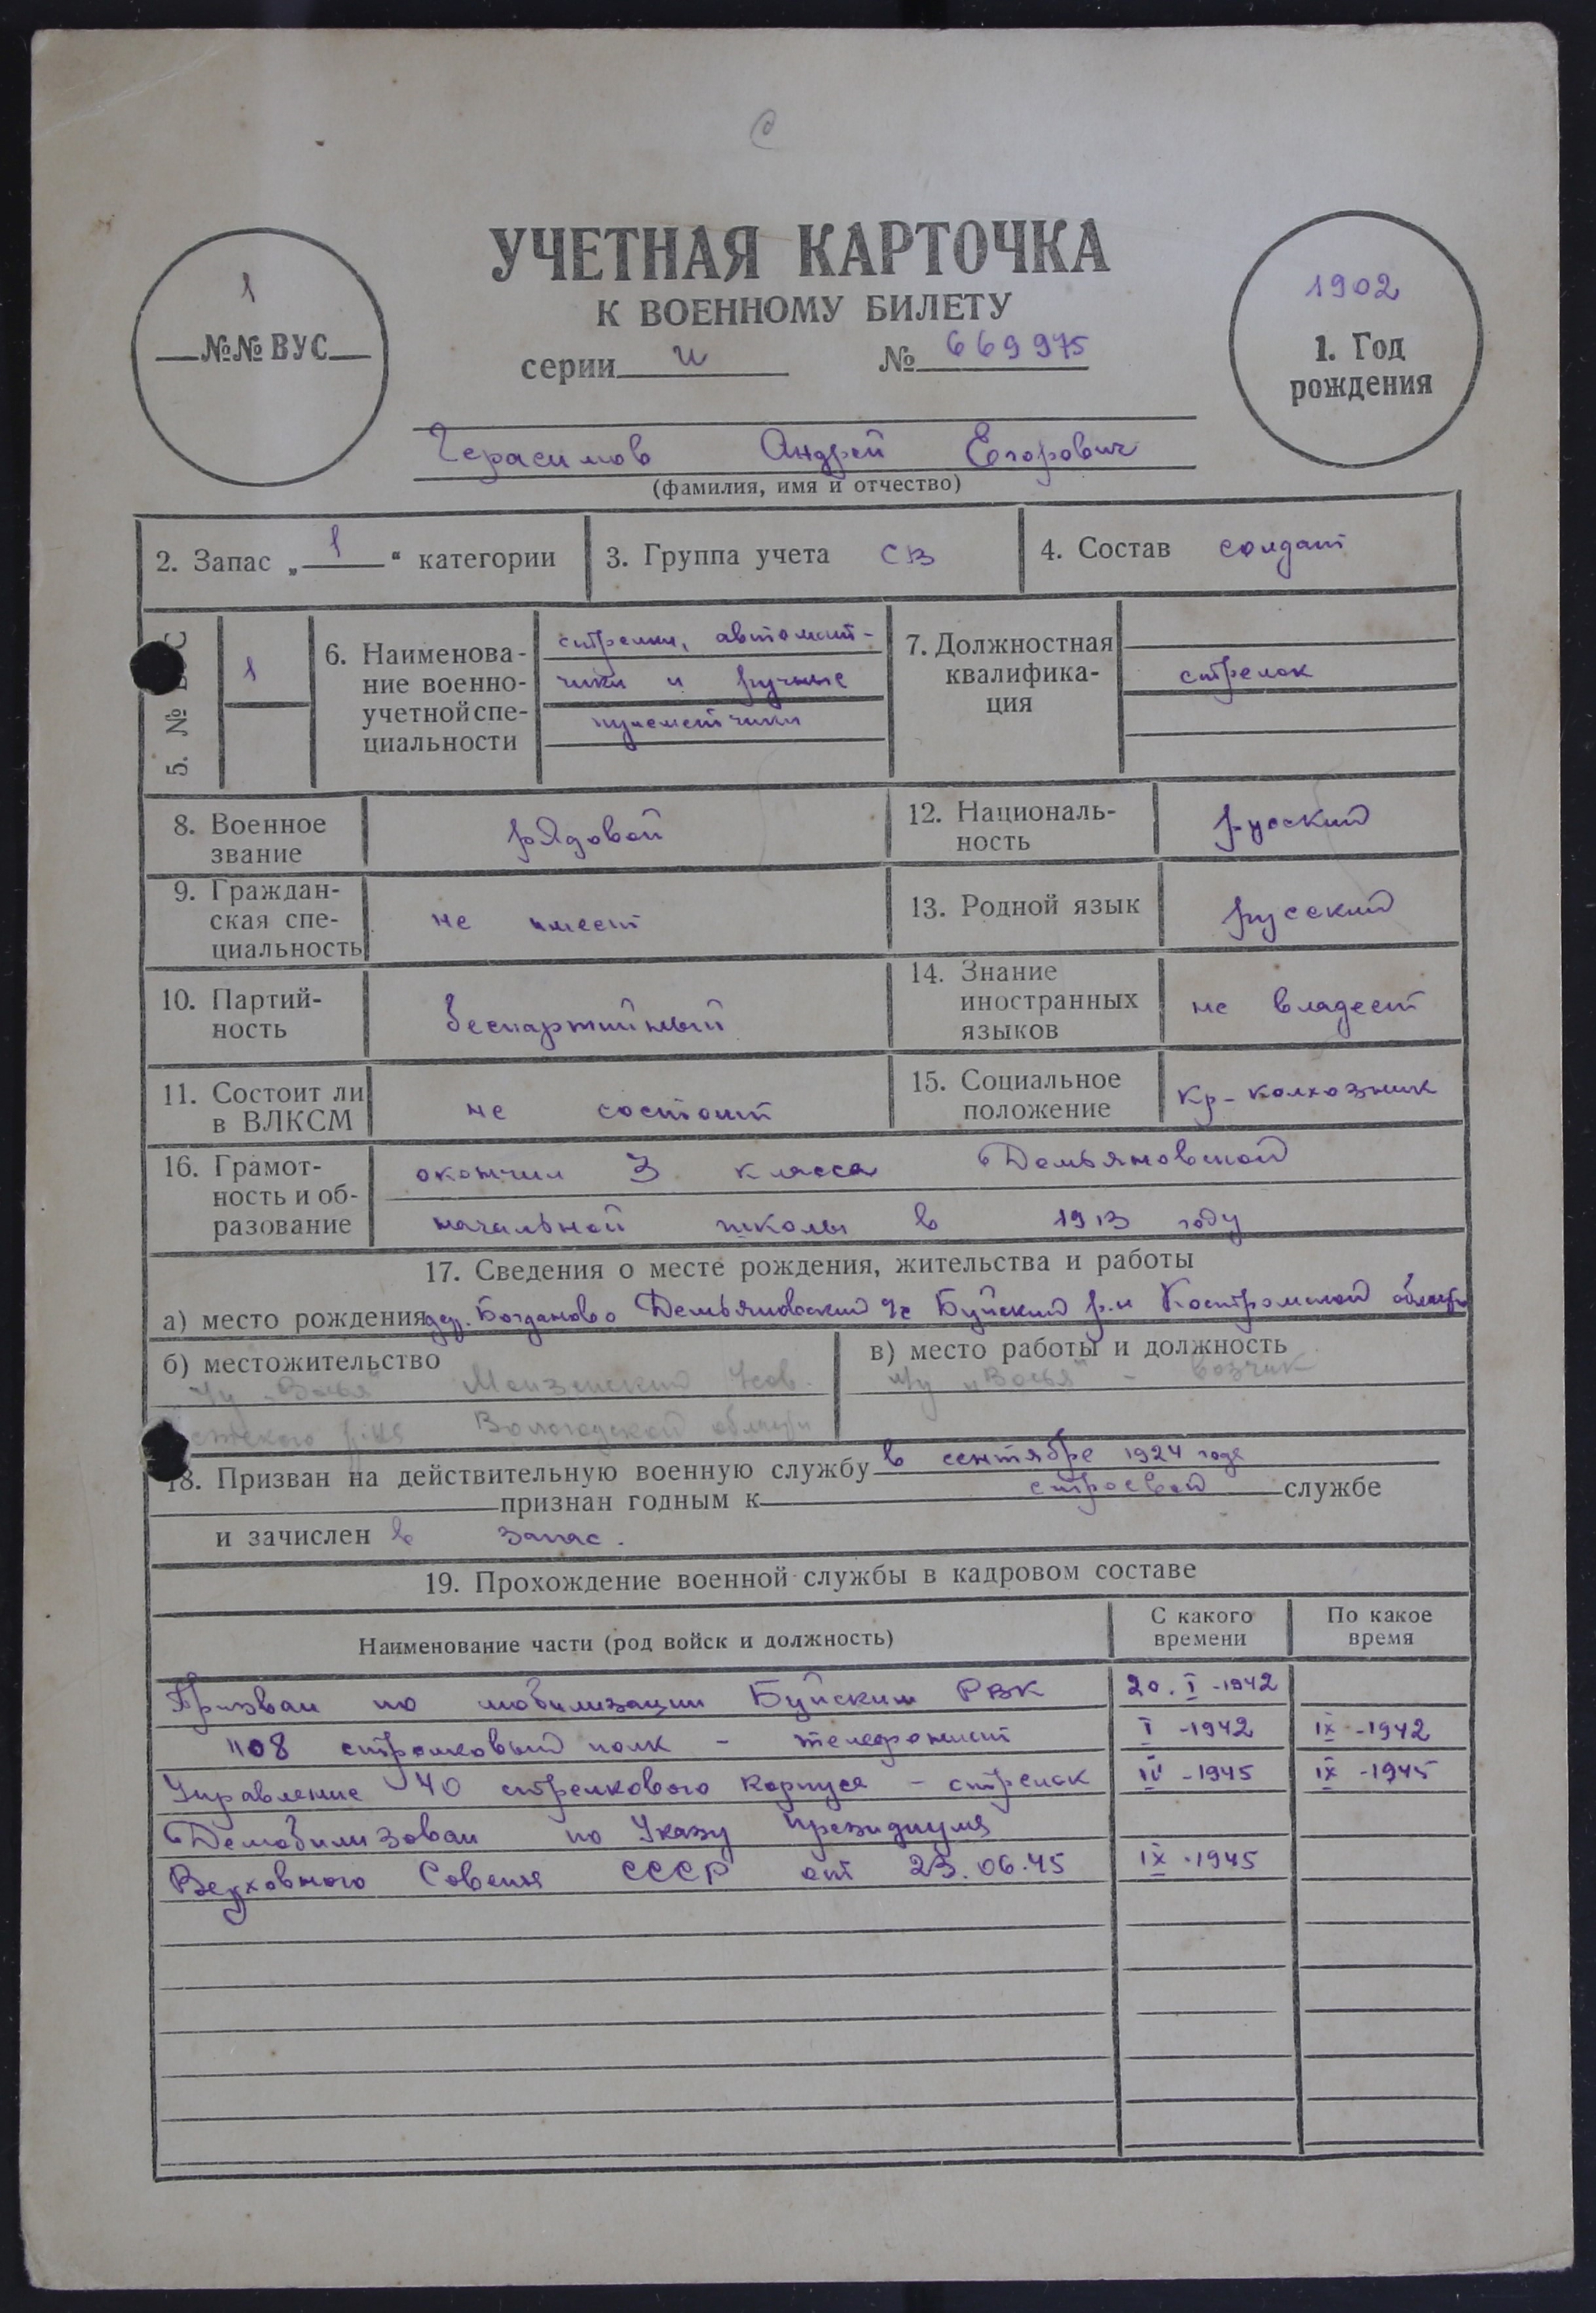 УЧЕТНАЯ КАРТОЧКА
К ВОЕННОМУ БИЛЕТУ
серии и № 669975
1
№№ ВУС
1902
1. Год
рождения
Герасимов Андрей Егорович
(фамилия, имя и отчество)
2. Запас „ 1 “ категории
3. Группа учета СВ
4. Состав солдат
5. № ВУС
1
6. Наименова-
ние военно-
учетной спе-
циальности
стрелки, автомат-
чики и ручные
пулеметчики
7. Должностная
квалифика-
ция
стрелок
8. Военное
звание
рядовой
12. Националь-
ность
русский
9. Граждан-
ская спе-
циальность
не имеет
13. Родной язык
русский
10. Партий-
ность
беспартийный
14. Знание
иностранных
языков
не владеет
11. Состоит ли
в ВЛКСМ
не состоит
15. Социальное
положение
кр-колхозник
16. Грамот-
ность и об-
разование
окончил 3 класса Демьяновской
начальной школы в 1913 году
17. Сведения о месте рождения, жительства и работы
а) место рождения дер. Богданово Демьяновский с/с Буйский р-н Костромской области
б) местожительство
Вологодской области
в) место работы и должность
- возчик
18. Призван на действительную военную службу в сентябре 1924 года
признан годным к строевой службе
и зачислен в запас.
19. Прохождение военной службы в кадровом составе
Наименование части (род войск и должность)
С какого
времени
По какое
время
Призван по мобилизации Буйским РВК 20.I-1942
1108 стрелковый полк - телефонист I-1942 IX-1942
Управление 40 стрелкового корпуса - стрелок IV-1945 IX-1945
Демобилизован по Указу Президиума
Верховного Совета СССР от 23.06.45 IX-1945